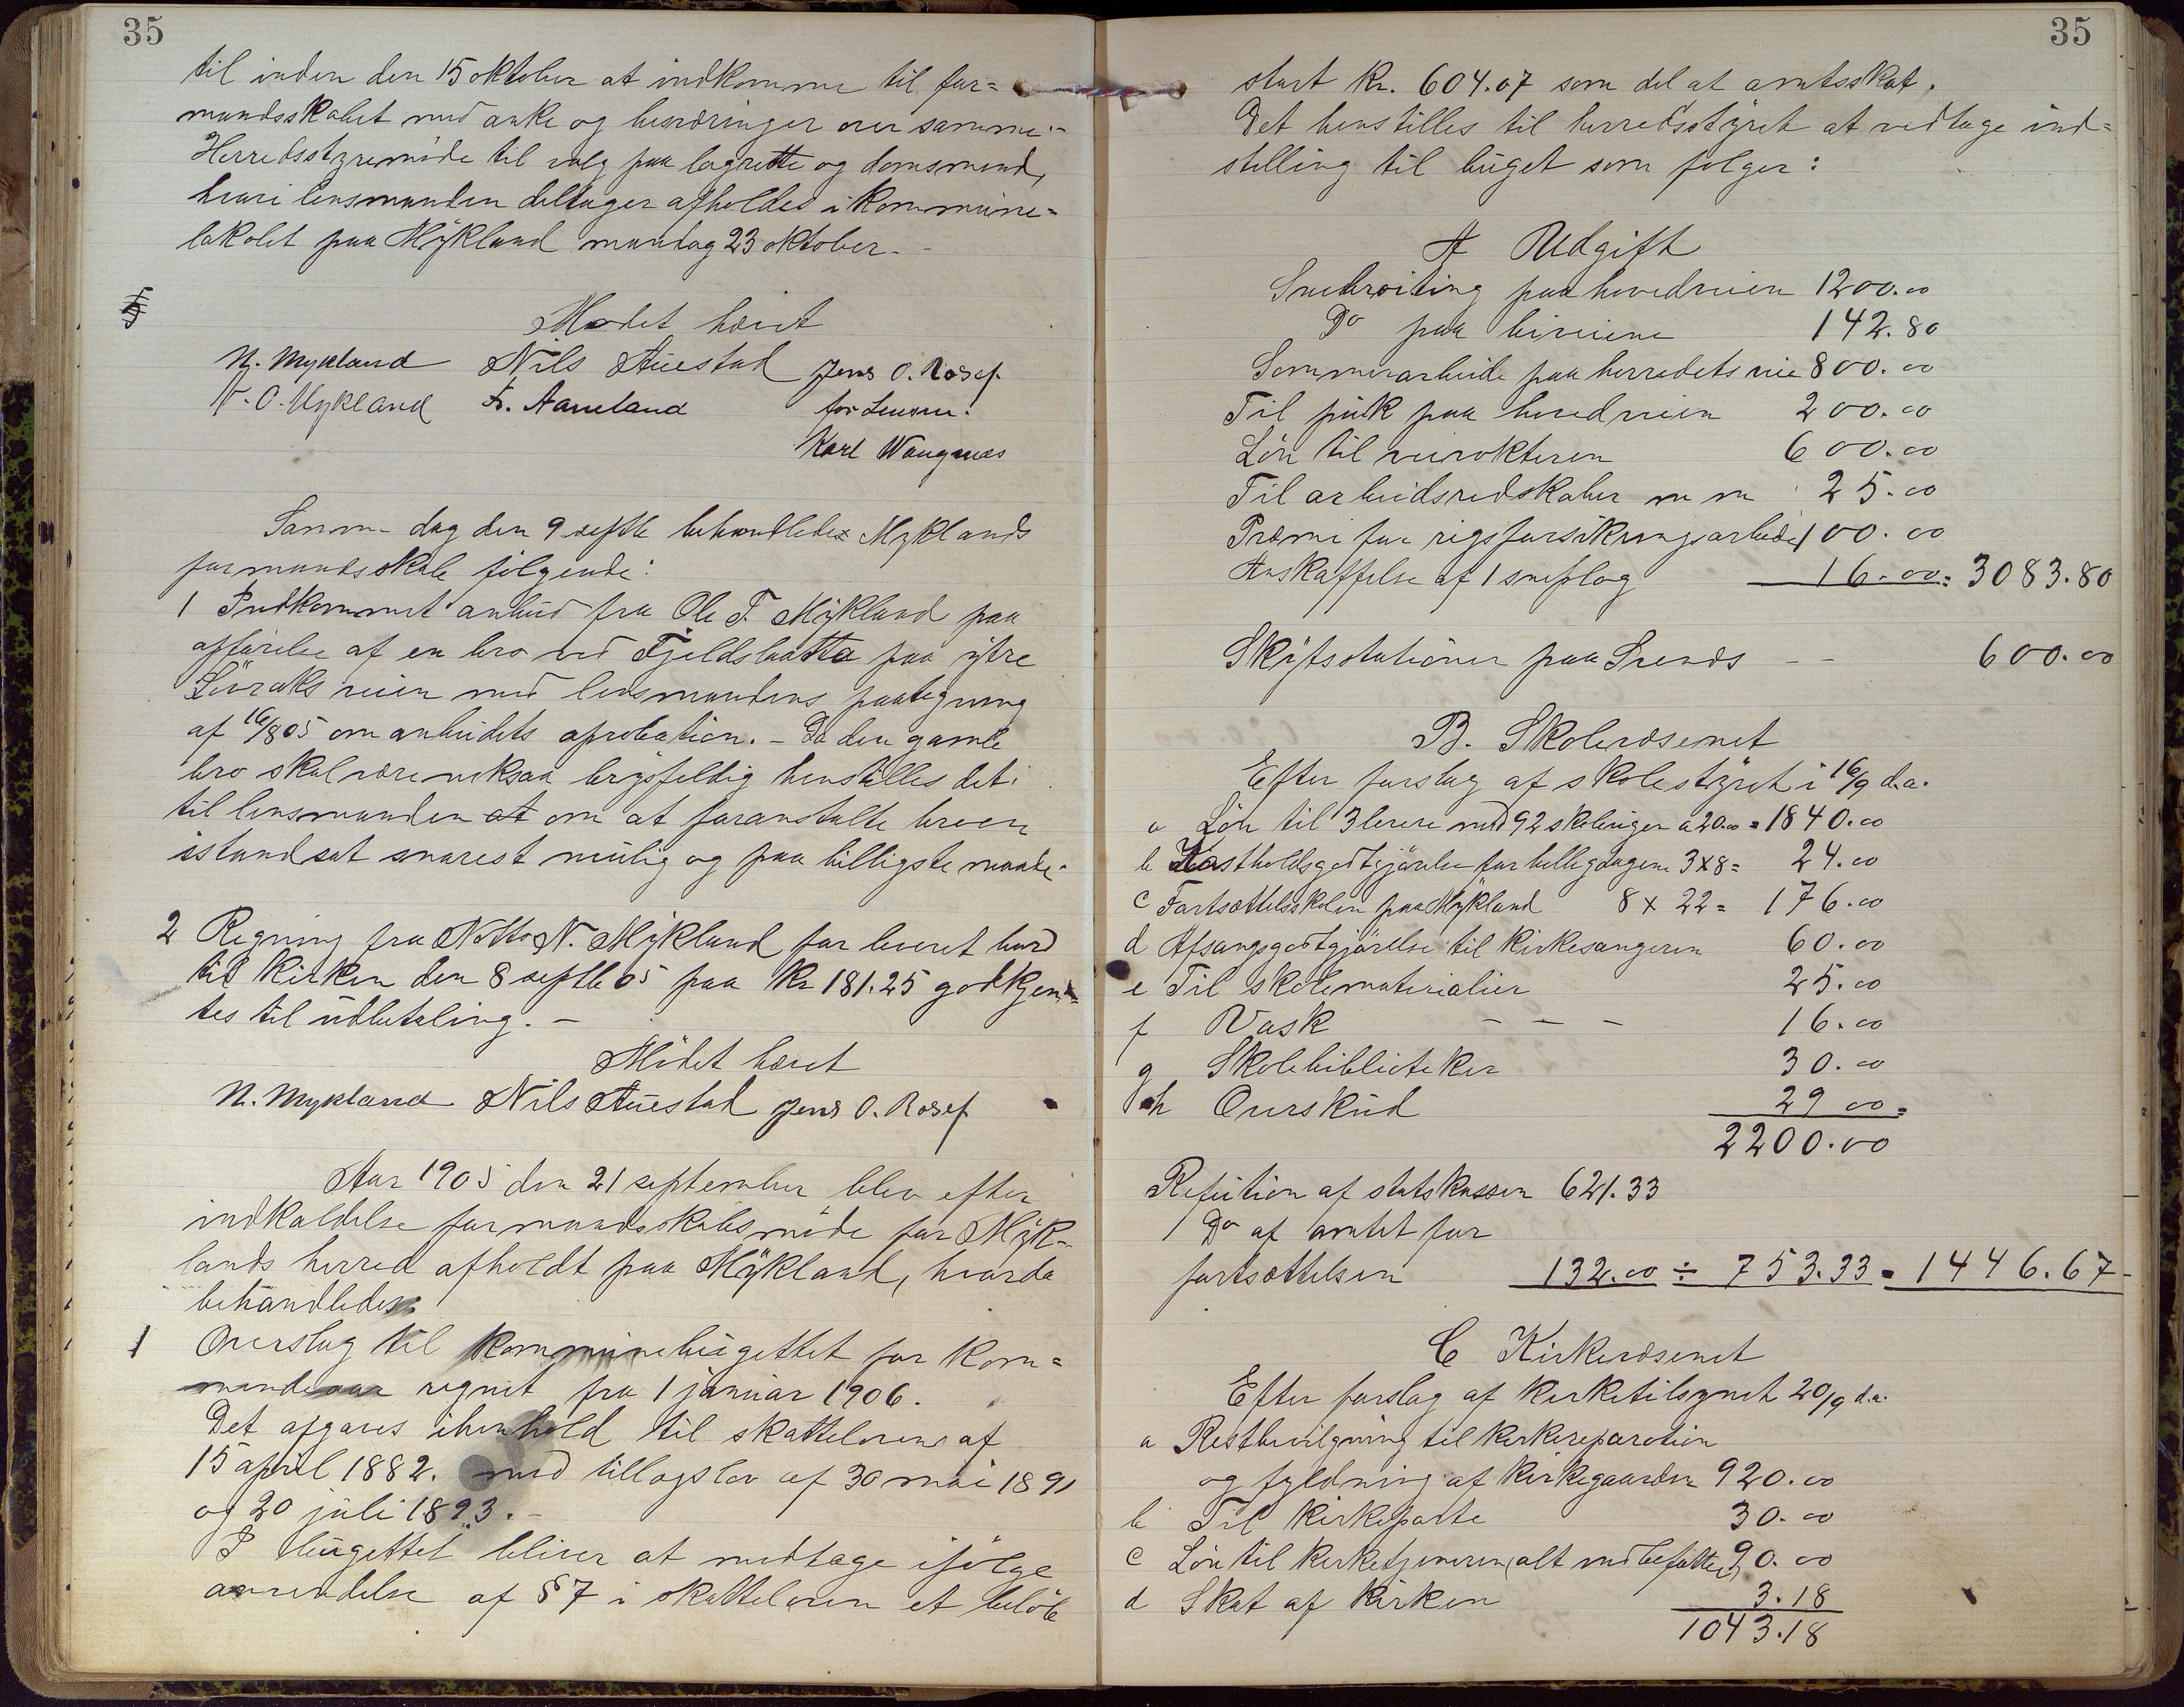 35
til inden den 15 oktober at indkomme til for=
mandsskabet med anke og besværinger over samme.-
Herredsstyremøde til valg paa lagrette og domsmend,
hvori lensmanden deltager afholdes i kommune=
lokalet paa Mykland mandag 23 oktober. -
Mødet hævet
N. Mykland Nils Auestad Jens O. Rosef
N. O. Mykland F. Aaneland for Lensm.
Karl Waagnæs
Samme dag den 9 septbr behandledes Myklands
formandsskab følgende:
1 Indkommet anbud fra Ole T. Mykland paa
opførelse af en bro ved Fjeldsbatta paa ytre
Lövraks veien med lensmandens paategning
af 16/8 05 om anbudets aprobation. - Da den gamle
bro skal være meksaa brøsfeldig henstilles det
til lensmanden at om at foranstalte broen
istandsat snarest mulig og paa billigste maade.
2 Regning fra Notto N. Mykland for leveret bord
til Kirken den 8 septbr 05 paa Kr 181.25 godkjen=
tes til udbetaling. -
Mødet hævet
N. Mykland Nils Auestad Jens O. Rosef
Aar 1905 den 21 september blev efter
indkaldelse formandsskabsmøde for Myk-
lands herred afholdt paa Mykland, hvorda
behandledes
1 Overslag til kommunebugettet for kom=
mende aar regnet fra 1 januar 1906.
Det afgaves ihenhold til skatteloven af
15 april 1882. med tillægslov af 30 mai 1891
og 20 juli 1893. -
I bugettet bliver at medtage ifølge
anvendelse af § 7 i skatteloven et beløb
35
stort Kr. 604.07 som del at amtsskat.
Det henstilles til herredsstyret at vedtage ind=
stilling til buget som følger:
A Udgift
Snebrøiting paa hovedveien 1200.00
Do paa biveiene 142.80
Sommerarbeide paa herredets veie 800.00
Til puk paa hovedveien 200.00
Løn til veivokteren 600.00
Til arbeidsredskaber m m 25.00
Præmi for rigsforsikringsarbeide 100.00
Anskaffelse af 1 sneplog 16.00= 3083.80
Skyfsstationer paa Svends - - 600.00
B. Skolevæsenet
Efter forslag af skolestyret i 16/9 d.a.
a Løn til 3 lærere med 92 skoleuger a 20.00 = 1840.00
b Kostholdsgodtgjørelse for helligdagene 3x8= 24.00
c Fortsættelsskolen paa Mykland 8 x 22 = 176.00
d Afsangsgodtgjørelse til kirkesangeren 60.00
e Til skolematerialier 25.00
f Vask - - - 16.00
g Skolebiblioteker 30.00
h Overskud 29 00=
2200.00
Refution af statskassen 621.33
Do af amtet for
fortsættelsen 132.00 ÷ 753.33 = 1446.67-
C Kirkevæsenet
Efter forslag af kirketilsynet 20/9 d.a.
a Restbevilgning til kirkereparation
og fyldning af kirkegaarden 920.00
b Til kirkeporte 30.00
c Løn til kirketjeneren (alt indbefattet) 90.00
d Skat af kirken 3.18
1043.18